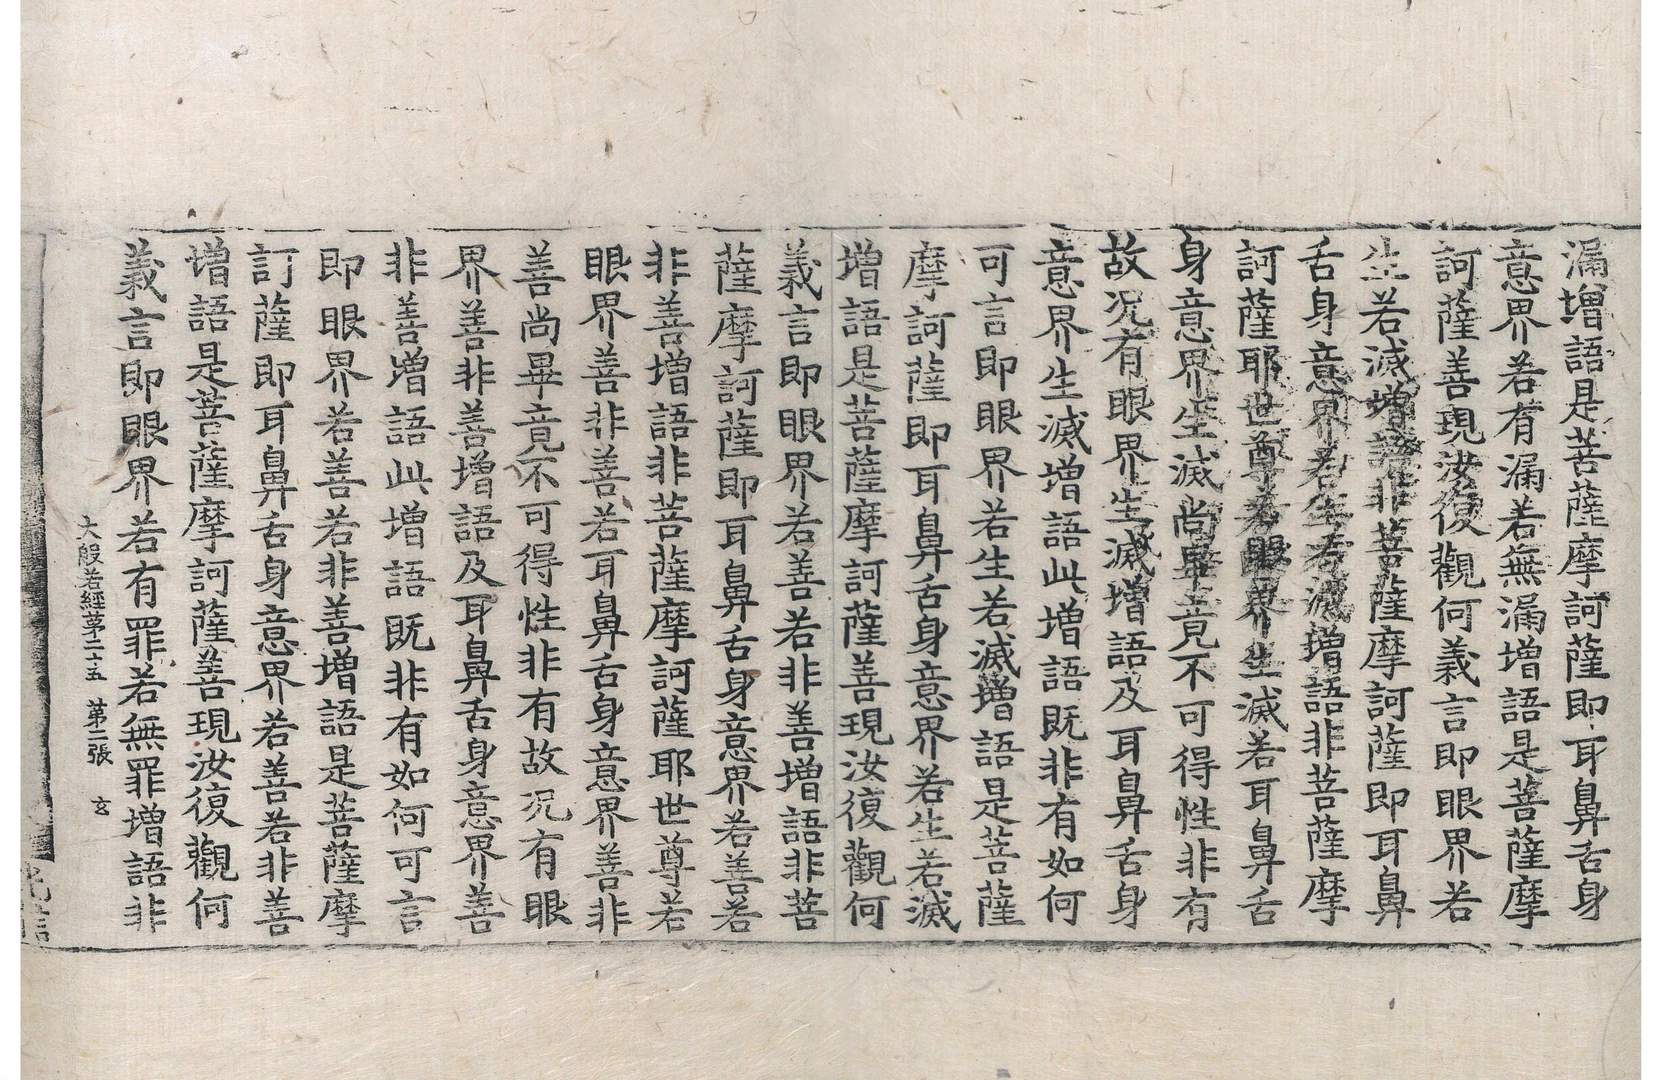 漏增語是菩薩摩訶薩即耳鼻舌身
意界若有漏若無漏增語是菩薩摩
訶薩善現汝復觀何義言即眼界若
生若滅增語非菩薩摩訶薩即耳鼻
舌身意界若生若滅增語非菩薩摩
訶薩耶世尊若眼界生滅若耳鼻舌
身意界生滅尚畢竟不可得性非有
故況有眼界生滅增語及耳鼻舌身
意界生滅增語此增語既非有如何
可言即眼界若生若滅增語是菩薩
摩訶薩即耳鼻舌身意界若生若滅
增語是菩薩摩訶薩善現汝復觀何
義言即眼界若善若非善增語非菩
薩摩訶薩即耳鼻舌身意界若善若
非善增語非菩薩摩訶薩耶世尊若
眼界善非善若耳鼻舌身意界善非
善尚畢竟不可得性非有故況有眼
界善非善增語及耳鼻舌身意界善
非善增語此增語既非有如何可言
即眼界若善若非善增語是菩薩摩
訶薩即耳鼻舌身意界若善若非善
增語是菩薩摩訶薩善現汝復觀何
義言即眼界若有罪若無罪增語非
大般若經第二十五 第二張 玄